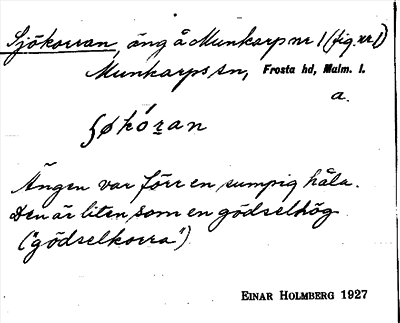 Sjökorran, äng å Munkarp nr 1 (fig. nr 1)
Munkarps sn, Frosta hd, Malm. l.
a.
ʃøkóran
Ängen var förr en sumpig håla.
Den är liten, som en gödselhög
("gödselkorra")
EINAR HOLMBERG 1927